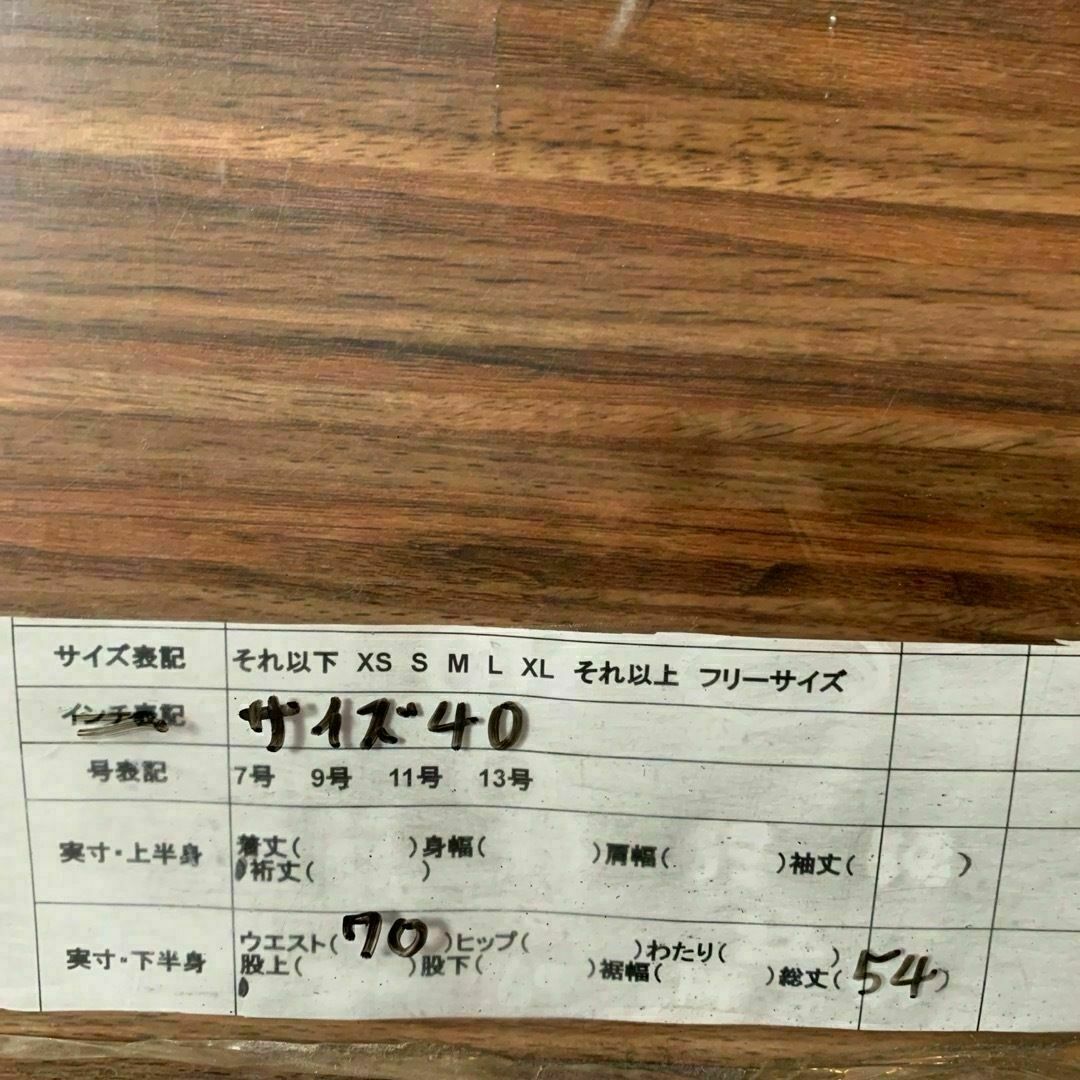 サイズ表記 それ以下 XS S M L XL それ以上 フリーサイズ
インチ表記 サイズ40
号表記 7号 9号 11号 13号
実寸・上半身 着丈( )身幅( )肩幅( )袖丈( )
裄丈( )
実寸・下半身 ウエスト(70)ヒップ( )わたり( )
股上( )股下( )裾幅( )総丈(54)